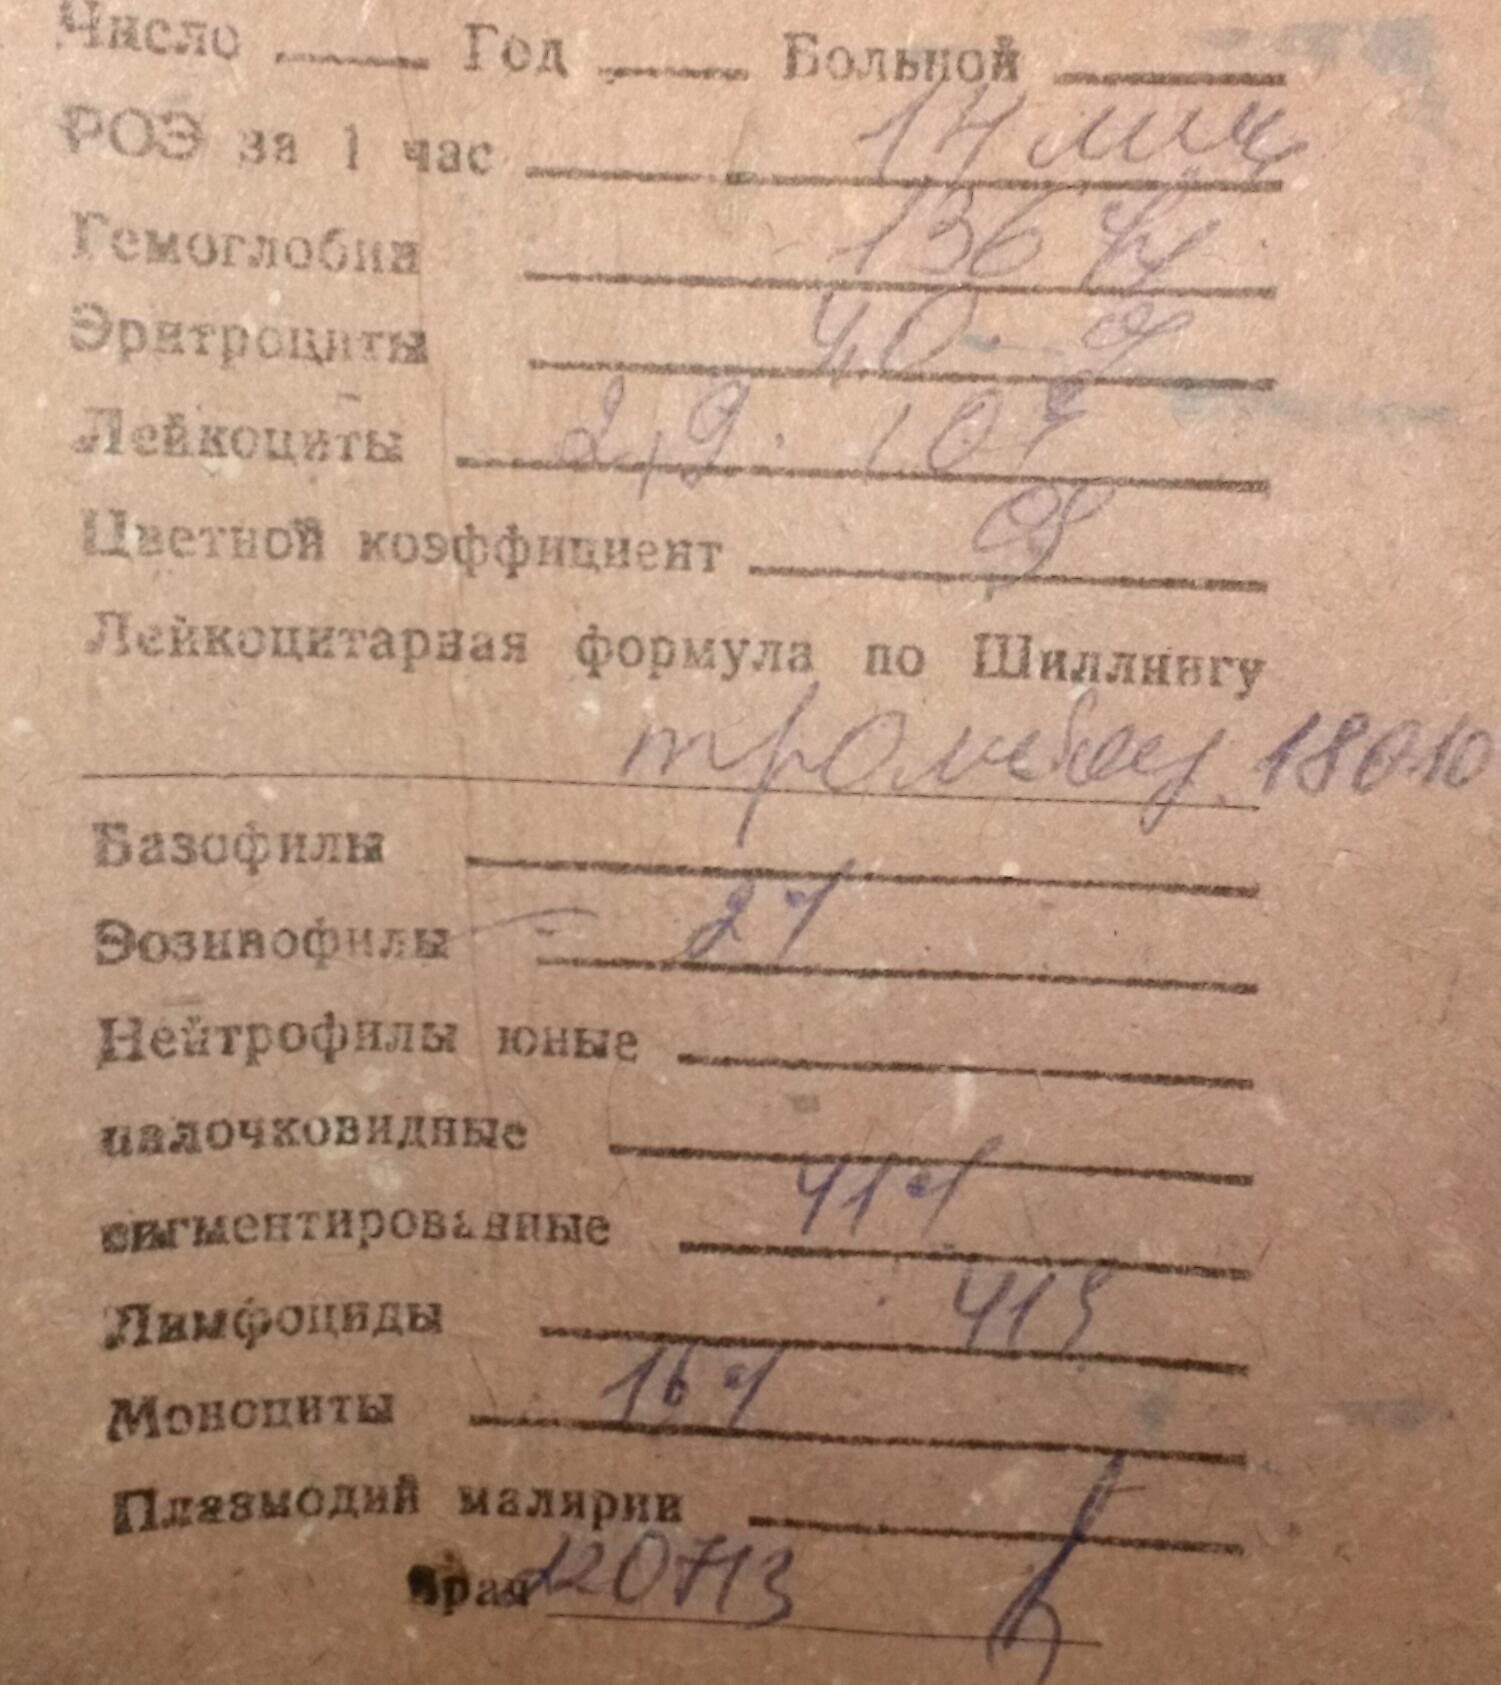 Число Год Больной
РОЭ за 1 час 14 мм/ч
Гемоглобин 136
Эритроциты 4,0
Лейкоциты 2,9 · 10⁹
Цветной коэффициент 0,9
Лейкоцитарная формула по Шиллингу
тромбоц. 180·10
Базофилы
Эозинофилы 2%
Нейтрофилы юные
палочковидные
сигментированные 41%
Лимфоциды 41%
Моноциты 16%
Плазмодий малярии
Врач 220713